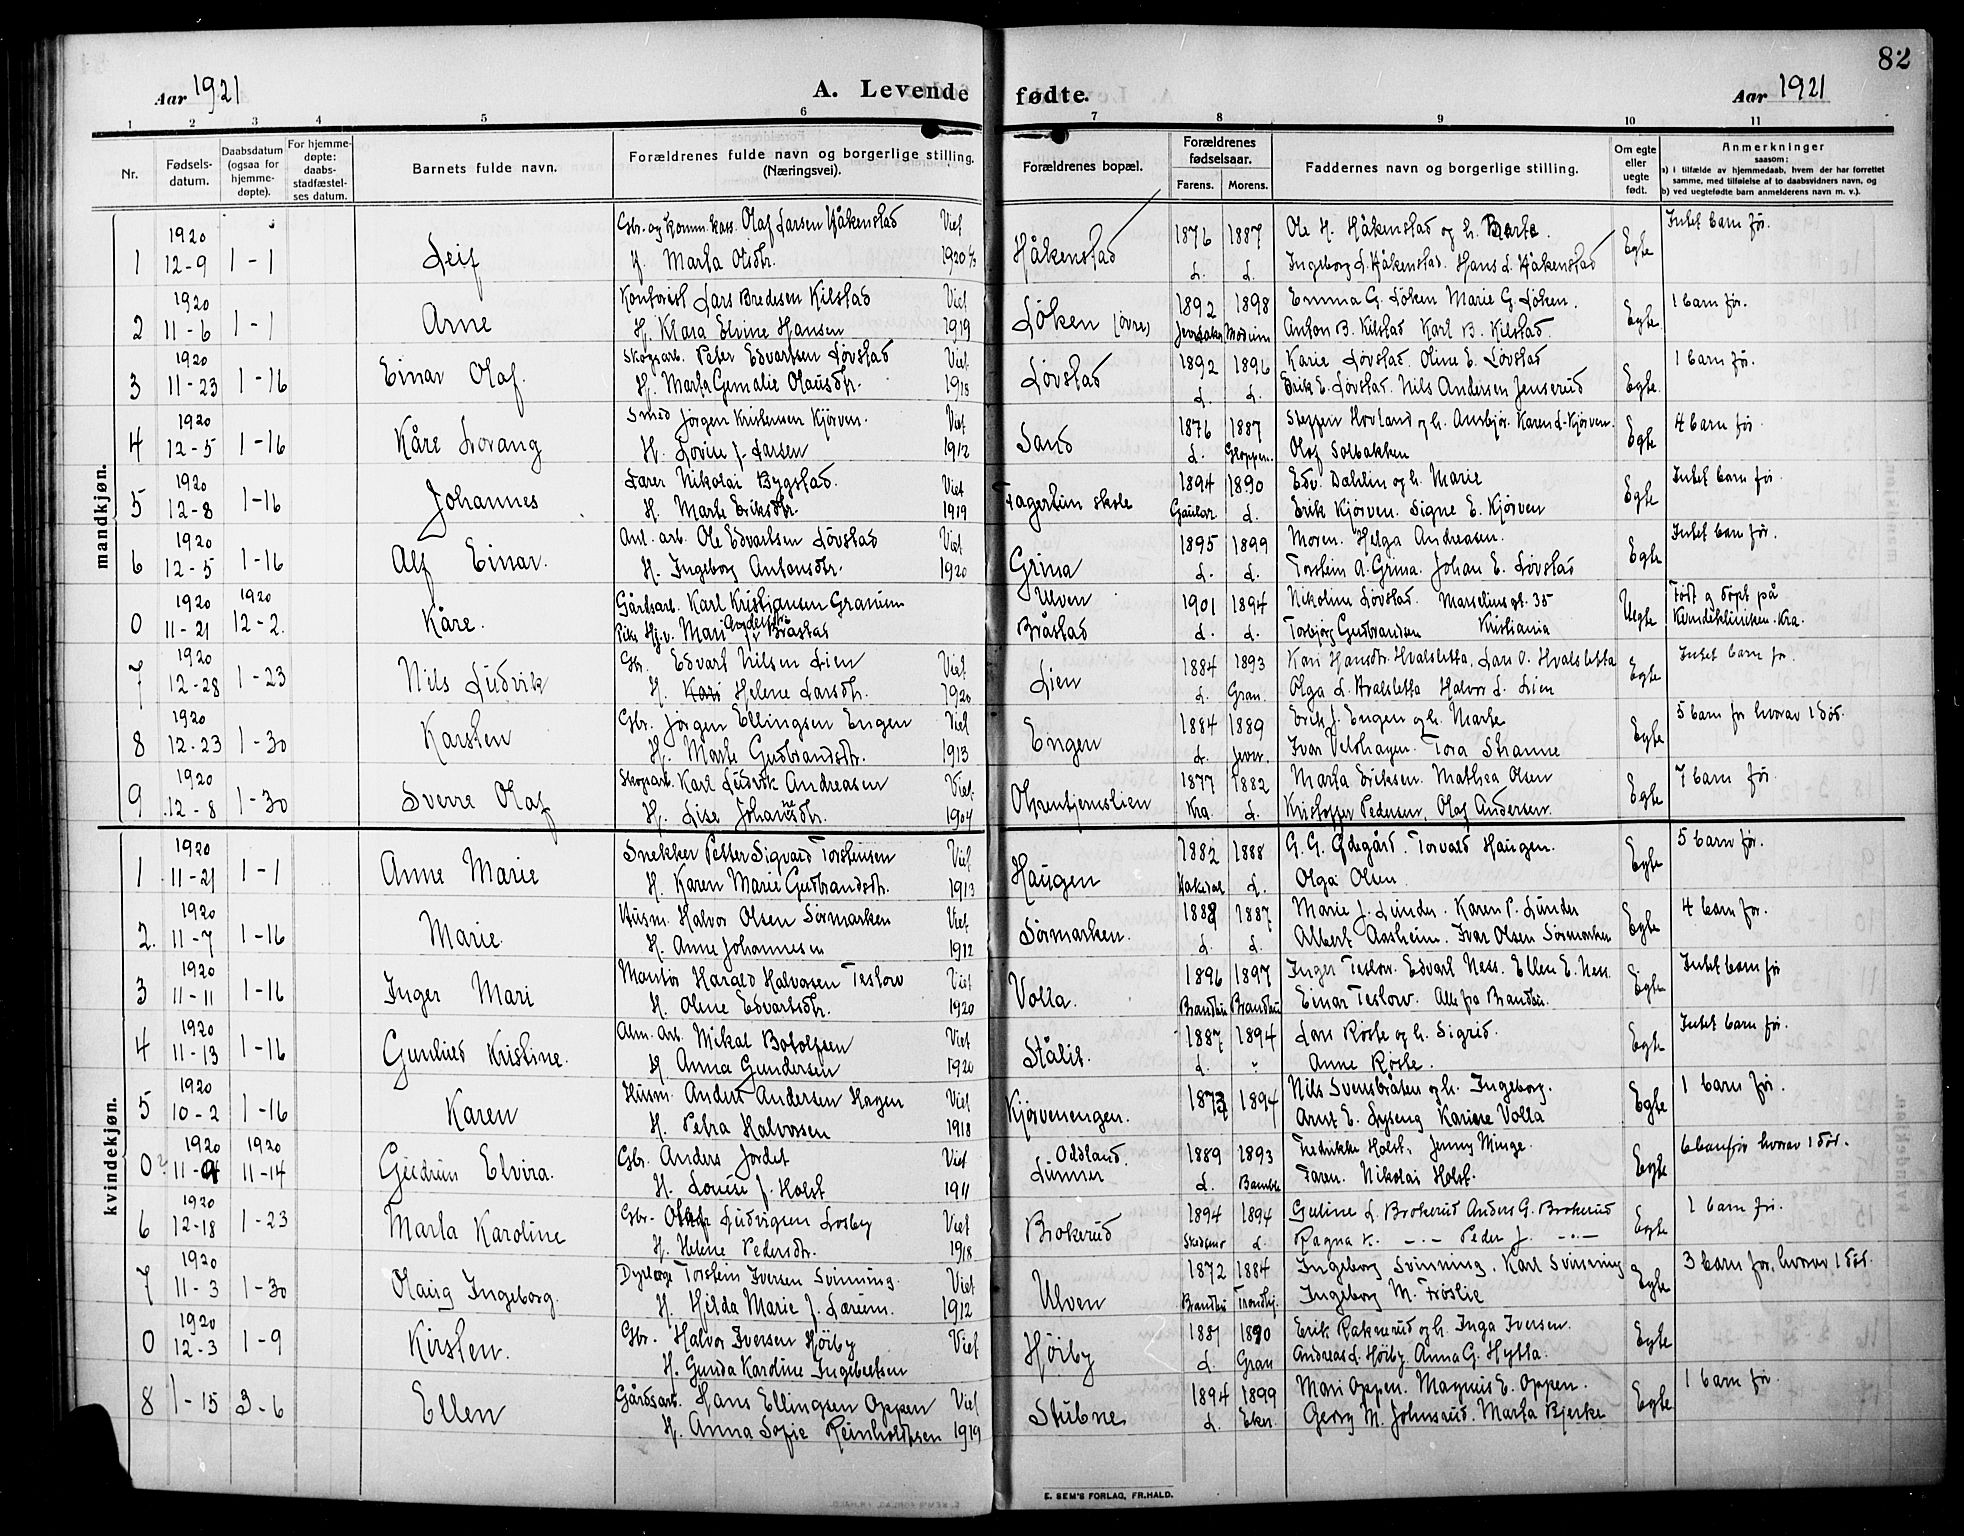 82
Aar 1921
A. Levende fødte.
Aar 1921
1 2 3 4 5 6 7 8 9 10 11
Nr.
Fødsels-datum.
Daabsdatum (ogsaa for hjemme-døpte).
For hjemme-døpte: daabs-stadfæstel-ses datum.
Barnets fulde navn.
Forældrenes fulde navn og borgerlige stilling. (Næringsvei).
Forældrenes bopæl.
Forældrenes fødselsaar.
Farens. Morens.
Faddernes navn og borgerlige stilling.
Om egte eller uegte født.
Anmerkninger
saasom:
a) i tilfælde av hjemmedaab, hvem der har forrettet samme, med tilføielse af to daabsvidners navn, og
b) ved uegtefødte barn anmelderens navn m. v.).
mandkjøn.
1920 Gbr. og Komm. kass. Olaf Larsen Håkenstad Viet 1876 1887 Ole H. Håkenstad og h. Marte. Intet barn før.
1 12-9 1-1 Leif H. Marta Olsdtr. 1920 Håkenstad L. L. Ingeborg L. Håkenstad. Hans L. Håkenstad Egte
1920 Kontorist Lars Bredesen Kilstad Viet 1892 1898 Emma G. Løken Marie G. Løken. 1 barn før.
2 11-6 1-1 Arne H. Klara Elvine Hansen 1919 Løken (øvre) Jevnaker Modum Anton B. Kilstad Karl B. Kilstad. Egte
1920 Skogsarb. Peter Edvartsen Løvstad Viet 1892 1896 Karie Løvstad. Oline E. Løvstad 1 barn før.
3 11-23 1-16 Einar Olaf. H. Marta Gemalie Olausdtr. 1918 Løvstad L. L. Erik E. Løvstad. Nils Andersen Jenserud Egte.
1920 Smed Jørgen Kristensen Kjørven. Viet 1876 1887 Steffen Hovland og h. Ansbjør. Karen L. Kjørven. 4 barn før.
4 12-5 1-16 Kåre Lovang H. Lovise J. Larsen 1912 Sand L. Gloppen. Olaf Solbakken Egte
1920 Lærer Nikolai Bygstad. Viet 1894 1890 Edv. Dahlin og h. Marie Intet barn før.
5 12-8 1-16 Johannes H. Marte Eriksdtr. 1919 Fagertun skole Gaular L. Erik Kjørven. Signe E. Kjørven Egte
1920 Anl. arb. Ole Edvartsen Løvstad Viet 1895 1899 Moren. Helga Andreasen. Intet barn før.
6 12-5 1-16 Alf Einar. H. Ingeborg Antonsdtr. 1920 Grina L. L. Torstein A. Grina. Johan E. Løvstad Egte
1920 1920 Gårdsarb. Karl Kristiansen Granum Ulven 1901 1894 Nikoline Løvstad. Marselius gt. 35 Født og døpt på
0 11-21 12-2. Kåre. Pike Hj. v. Mari Andersdtr. Bråstad Bråstad L. L. Torbjørg Gudbrandsen Kristiania Uegte Kvindekliniken. Kra.
1920 Gbr. Edvart Nilsen Lien Viet 1884 1893 Kari Hansdtr. Hvalsletta, Lars O. Hvalsletta Intet barn før.
7 12-28 1-23 Nils Ludvik H. Kari Helene Larsdtr. 1920 Lien L. Gran. Olga L. Hvalsletta Halvor L. Lien Egte
1920 Gbr. Jørgen Ellingsen Engen Viet 1884 1889 Erik J. Engen og h. Marte 5 barn før hvorav 1 død.
8 12-23 1-30 Karsten H. Marte Gudbrandsdtr. 1913 Engen L. Jevn. Ivar Velohagen. Tora Stranne Egte
1920 Skogsarb. Karl Ludvik Andreasen Viet. 1877 1882 Marta Eriksen. Mathea Olsen 7 barn før.
9 12-8 1-30 Sverre Olaf H. Lise Johannesdtr. 1904 Ohrentjernslien Kra. L. Kristoffer Pedersen, Olaf Andersen. Egte
kvindekjøn.
1920 Snekker Petter Sigvard Torstensen Viet 1882 1888 G. G. Ødegård. Torvald Haugen. 5 barn før.
1 11-21 1-1 Anne Marie H. Karen Marie Gudbrandsdtr. 1913 Haugen Hakedal L. Olga Olsen. Egte
1920 Husm. Halvor Olsen Sørmarken Viet 1888 1887 Marie J. Lunder. Karen P. Lunder 4 barn før.
2. 11-7 1-16 Marie. H. Anne Johannesen 1912 Sørmarken. L. L. Albert Aasheim. Ivar Olsen Sørmarken Egte
1920 Montør Harald Halvorsen Teslow Viet 1896 1897 Inger Teslow. Edvart Ness. Ellen E. Ness. Intet barn før
3 11-11 1-16 Inger Mari H. Oline Edvartsdtr. 1920 Volla. Brandbu Brandbu Einar Teslow. Alle fra Brandbu. Egte
1920 Alm. arb. Mikal Botolfsen Viet 1887 1894 Lars Røste og h. Sigrid. Intet barn før.
4 11-13 1-16 Gunhild Kristine. H. Anna Gundersen 1920 Stålit. L. " Anne Røste. Egte
1920 Husm. Anders Andersen Hagen Viet 1873 1894 Nils Svensbråten og h. Ingeborg. 1 barn før.
5 10-2 1-16 Karen H. Petra Halvorsen 1918 Kjørvenengen. Arnt E. Lyseng Kariere Volla Egte
1920 1920 Gbr. Anders Jordet Viet Oddland. 1889 1893 Fredrikke Holst. Jenny Minge. 6 barn før hvorav 1 død.
0 11-9 11-14 Geidrun Elvira. H. Louise J. Holst 1911 Lunner L. Bamble Faren. Nikolai Holst. Egte
1920 Gbr. Olaf Ludvigsen Losby Viet 1894 1894 Guline L. Brokerud Anders G. Brokerud 1 barn før.
6 12-18 1-23 Marta Karoline H. Helene Pedersdtr. 1918 Brokerud Skedsmo L. Ragna K. -"- Peder J. -"- Egte
1920 Dyrlæge Torstein Iversen Svinning. Viet 1872 1884 Ingeborg Svinning. Karl Svinning 3 barn før, hvorav 1 død.
7 11-3 1-30 Olaug Ingeborg. H. Hilda Marie J. Larum. 1912 Ulven Brandbu Trondhj. Ingeborg M. Frøslie Egte
1920 Gbr. Halvor Iversen Høiby Viet 1881 1890 Erik Raknerud og h. Inga Iversen.
0 12-3 1-9 Kirsten. H. Gunda Karoline Ingebretsen Høiby L. Gran Andreas L. Høiby. Anna G. Hytta. Egte
8 1-15 3-6 Ellen Gårdsarb. Hans Ellingsen Oppen Viet 1894 1899 Mari Oppen. Magnus E. Oppen. 1 barn før.
H. Anna Sofie Reinholdtsen 1919 Stubne. L. Eker. Georg M. Johnsrud. Marta Bjerke Egte
E. SEM'S FORLAG, FR.HALD.